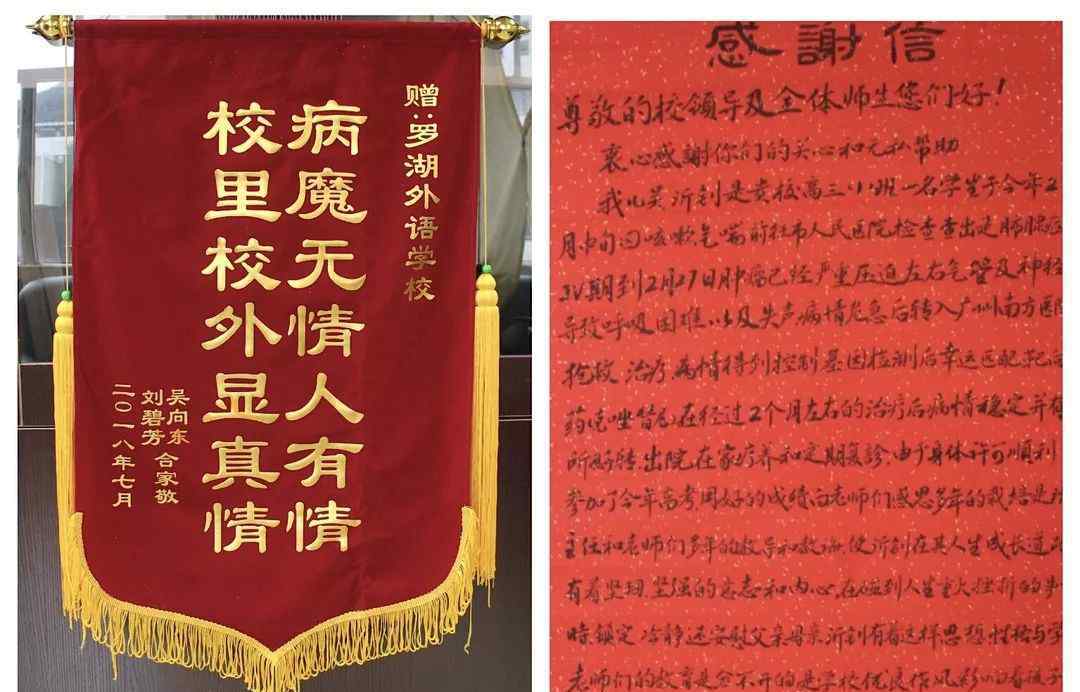 赠:罗湖外语学校
病魔无情人有情
校里校外显真情
吴向东
刘碧芳 合家敬
二〇一八年七月
感謝信
尊敬的校领导及全体师生您们好!
衷心感謝你们的关心和无私帮助
我儿吴沂钊是贵校高三(1)班一名学生于今年2
月中旬因咳嗽气喘前往市人民医院检查查出是肺腺癌
IV期到2月27日肿瘤已经严重压迫左右气管及神经
导致呼吸困难以及失声病情危急后转入广州南方医院
抢救治疗病情得到控制基因检测后幸运匹配靶向
药克唑替尼在经过2个月左右的治疗后病情稳定并有
所好转.出院在家疗养和定期复診.由于身体许可順利
参加了今年高考用好的成績向老师们感恩多年的栽培是
主任和老师们多年的教导和教诲,使沂钊在其人生成长道
有着坚韧.坚强的意志和内心,在碰到人生重大挫折的
時鎮定冷静还安慰父亲母亲沂钊有着这样思想性格与学
老师们的教育是分不开的是学校优良作风影响着孩子